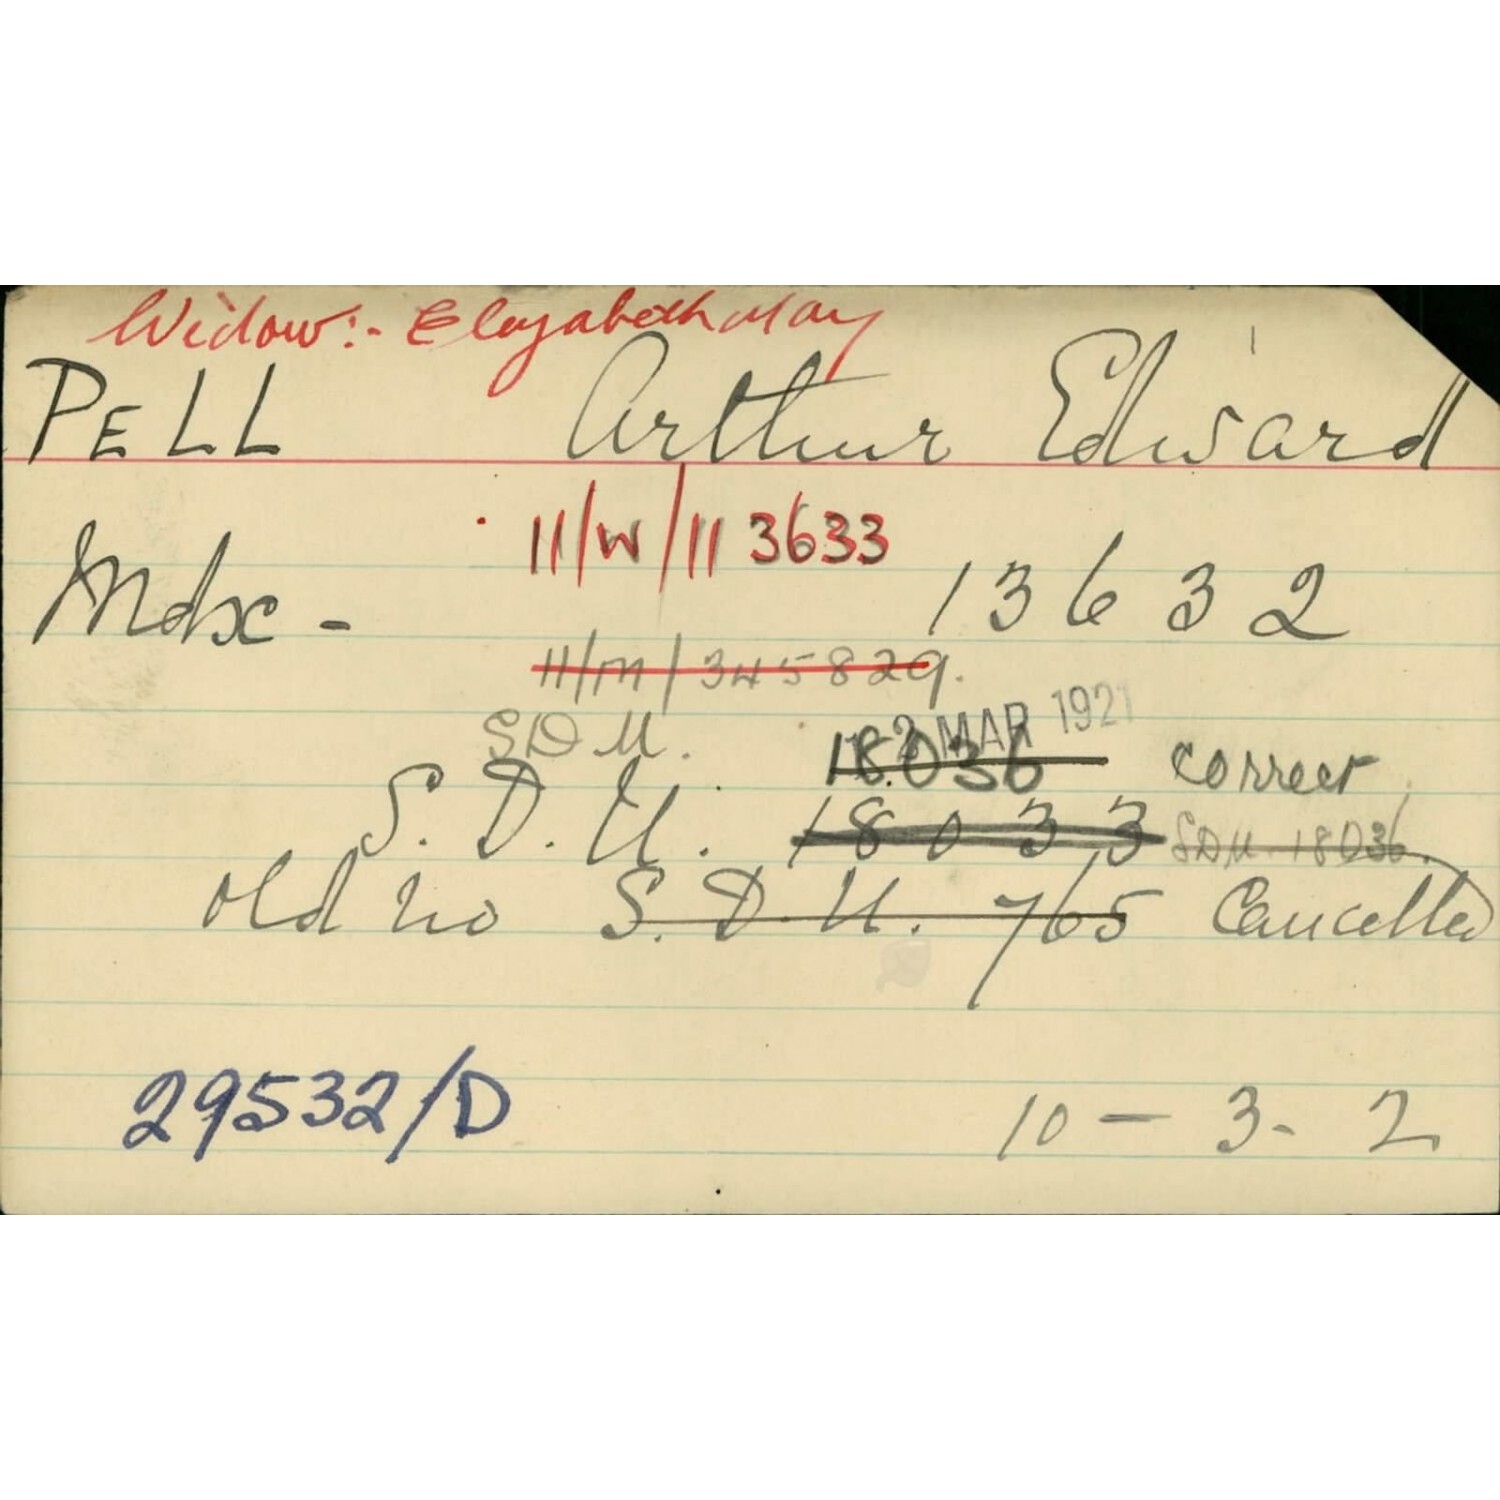 Widow:- Elizabeth May
PELL Arthur Edward
11/W/11 3633
Mdx - 13632
11/M/345829.
2 MAR 1921
S D U. 18.036 correct
S. D. U. 18033 SDU 18036.
old no S. D. U. 765 Cancelled
29532/D 10 - 3 - 2